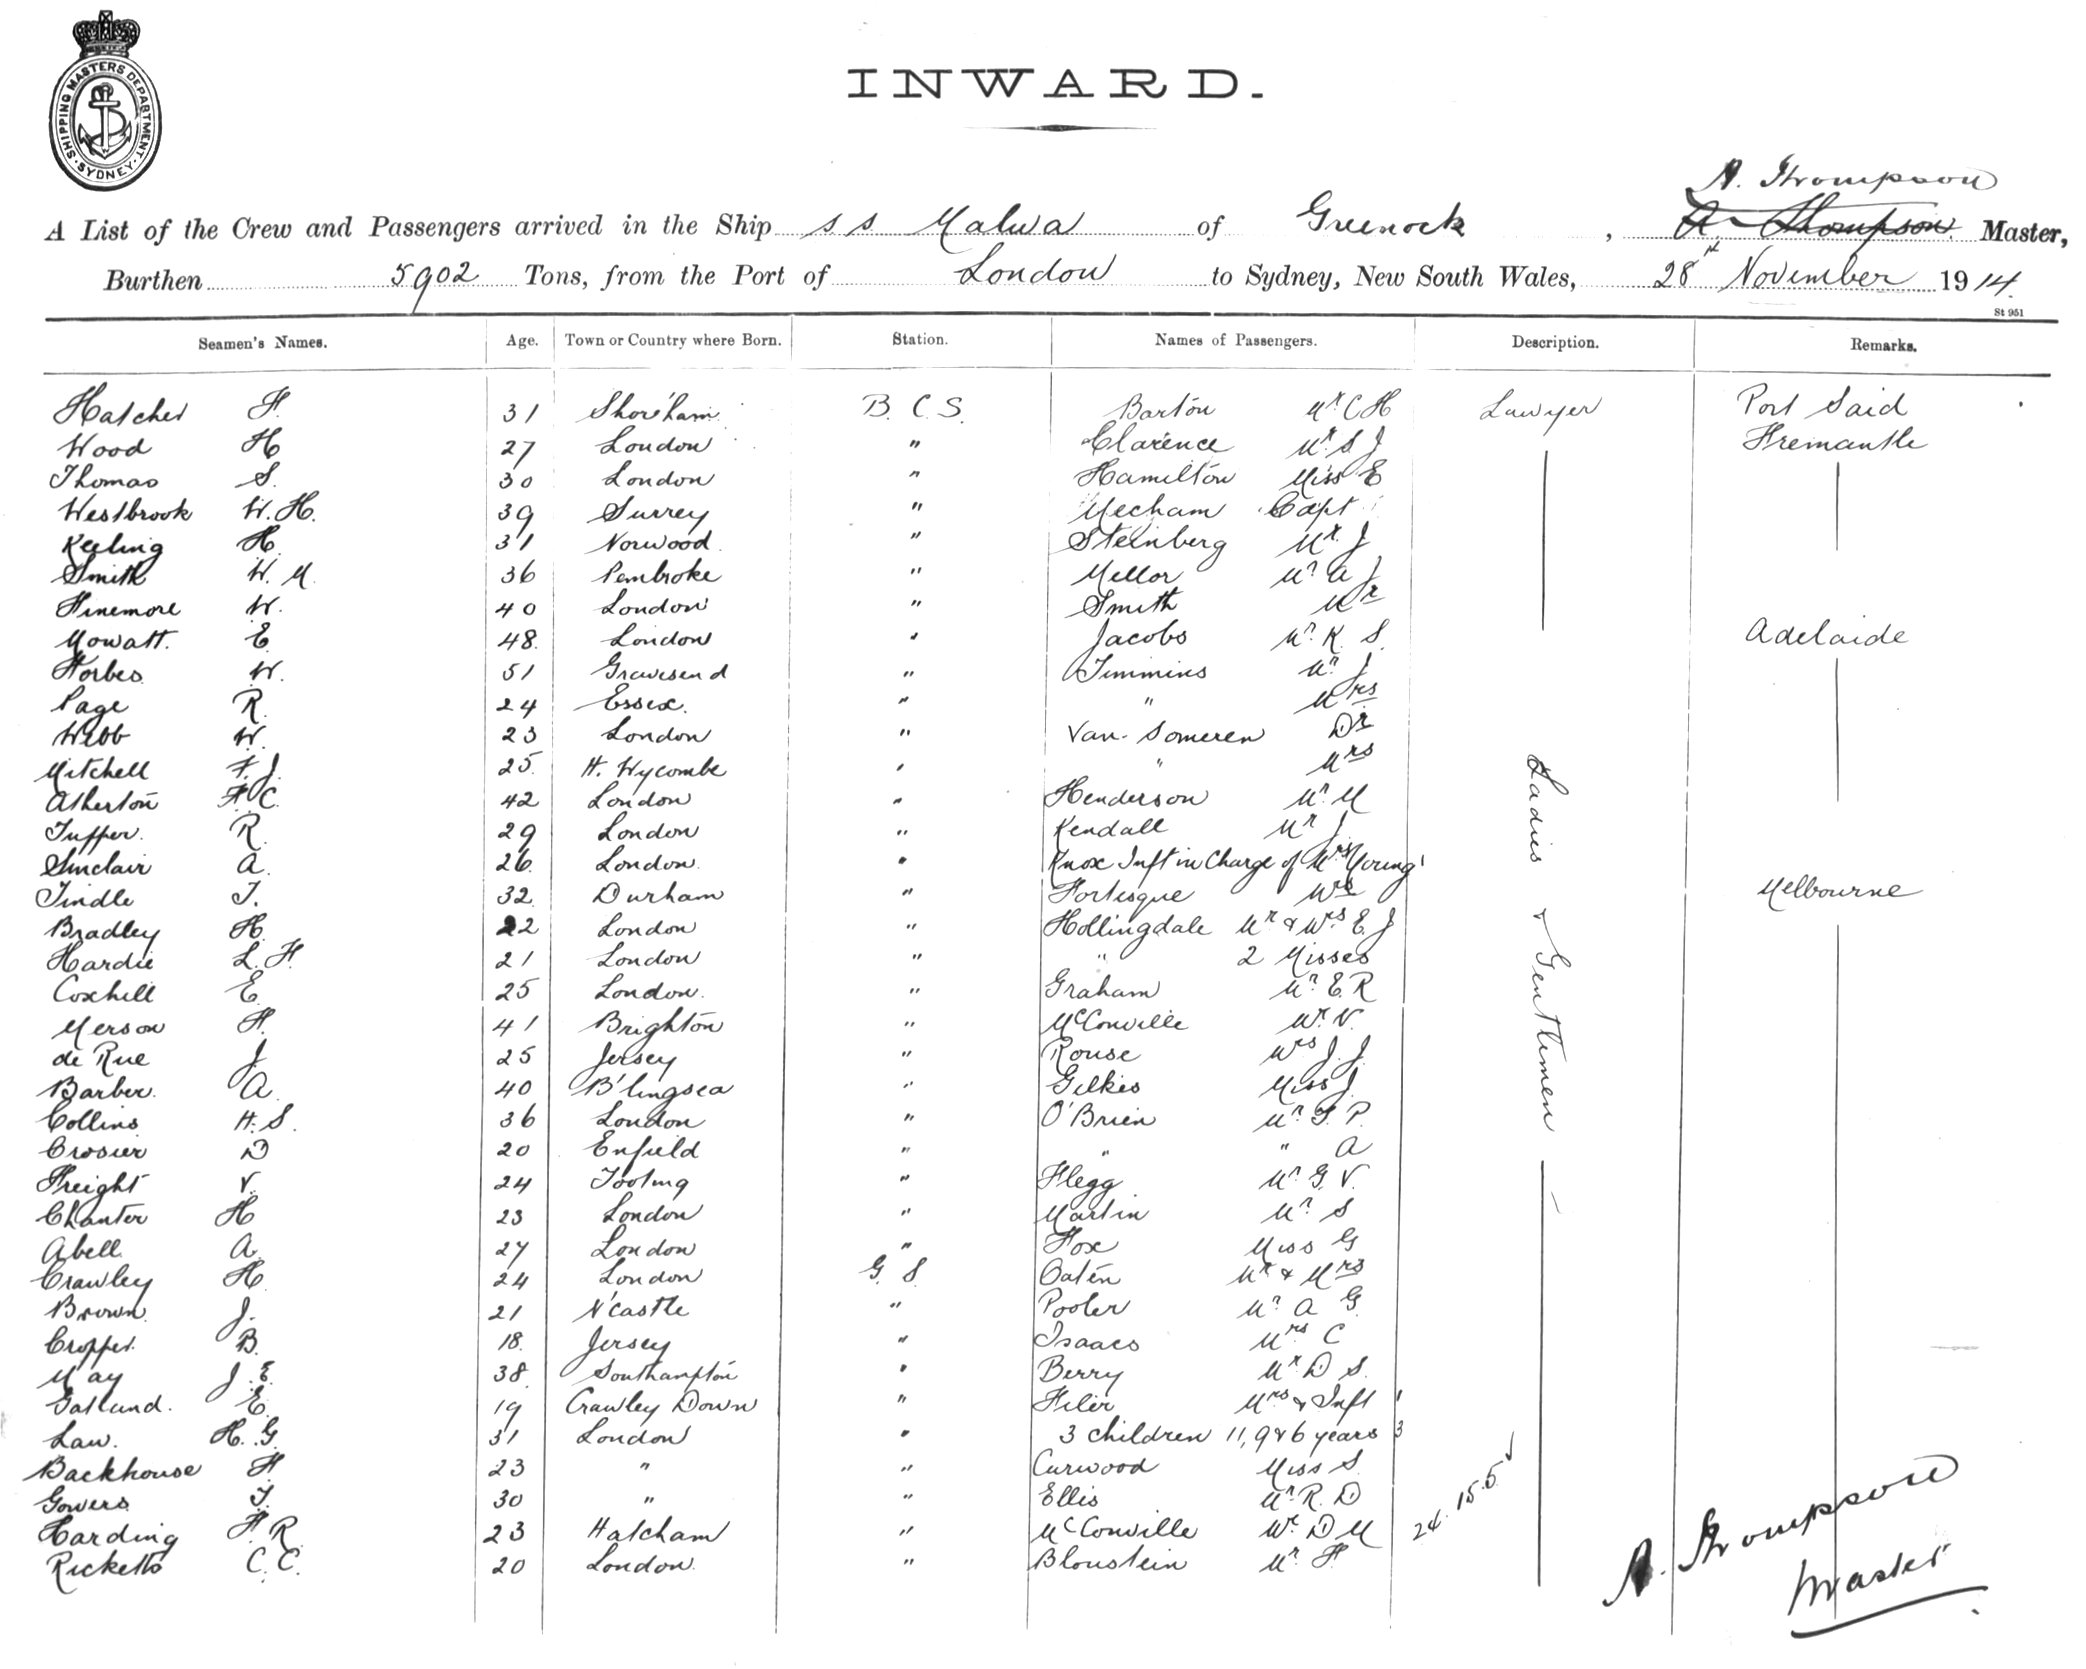 SHIPPING MASTERS DEPARTMENT. SYDNEY.
INWARD.
A. Thompson
A List of the Crew and Passengers arrived in the Ship s s Malwa of Greenock, A Thompson. Master,
Burthen 5902 Tons, from the Port of London to Sydney, New South Wales, 28th November 1914.
St 951
Seamen's Names. Age. Town or Country where Born. Station. Names of Passengers. Description. Remarks.
Hatcher F. 31 Shoreham B. C. S. Barton Mr C H Lawyer Port Said
Wood H 27 London " Clarence Mr S J Fremantle
Thomas S. 30 London " Hamilton Miss E
Westbrook W. H. 39 Surrey " Mecham Capt
Keeling H. 31 Norwood " Steinberg Mr. J
Smith W. M. 36 Pembroke " Mellor Mr A J
Finemore W. 40 London " Smith Mr
Mowatt. E 48. London " Jacobs Mr K. S. Adelaide
Forbes W. 51 Gravesend " Timmins Mr J
Page R. 24 Essex. " " Mrs
Webb W. 23 London " Van Someren Dr
Mitchell F. J. 25. H. Wycombe " " Mrs
Atherton F. C. 42 London " Henderson Mr M
Tupper. R. 29 London " Kendall Mr J
Sinclair A. 26 London. " Knox Inft in Charge of Mrs Young 1
Tindle T. 32 Durham " Fortesque Mrs Melbourne
Bradley H. 22 London " Hollingdale Mr & Mrs E. J
Hardie L. F. 21 London " " 2 Misses
Coxhill E. 25 London. " Graham Mr E. R
Merson F. 41 Brighton " McConville Mr V.
de Rue J 25 Jersey " Rouse Mrs J. J.
Barber. A. 40 B'lingsea " Gilkes Miss J.
Collins H. S. 36 London " O'Brien Mr T. P.
Crosier D 20 Enfield " " " A
Freight V. 24 Tooting " Flegg Mr G. V.
Chanter H 23 London " Martin Mr S
Abell A. 27 London " Fox Miss G
Crawley H. 24 London G. S. Oaten Mr & Mrs
Brown. J. 21 N'castle " Pooler Mr A G.
Cropper. B. 18. Jersey " Isaacs Mrs C
May J. E. 38. Southampton " Berry Mr D S.
Gatland. E. 19 Crawley Down " Filer Mrs & Inft 1
Law. H. G. 31 London " 3 children 11, 9 & 6 years 3
Backhouse F. 23 " " Curwood Miss S.
Gowers T. 30 " " Ellis Mr R. D
Harding F. R. 23 Hatcham " McConville Mr D M
Ricketts C. C. 20 London. " Bloustein Mr F.
Ladies & Gentlemen
24. 15. 5
A. Thompson
Master